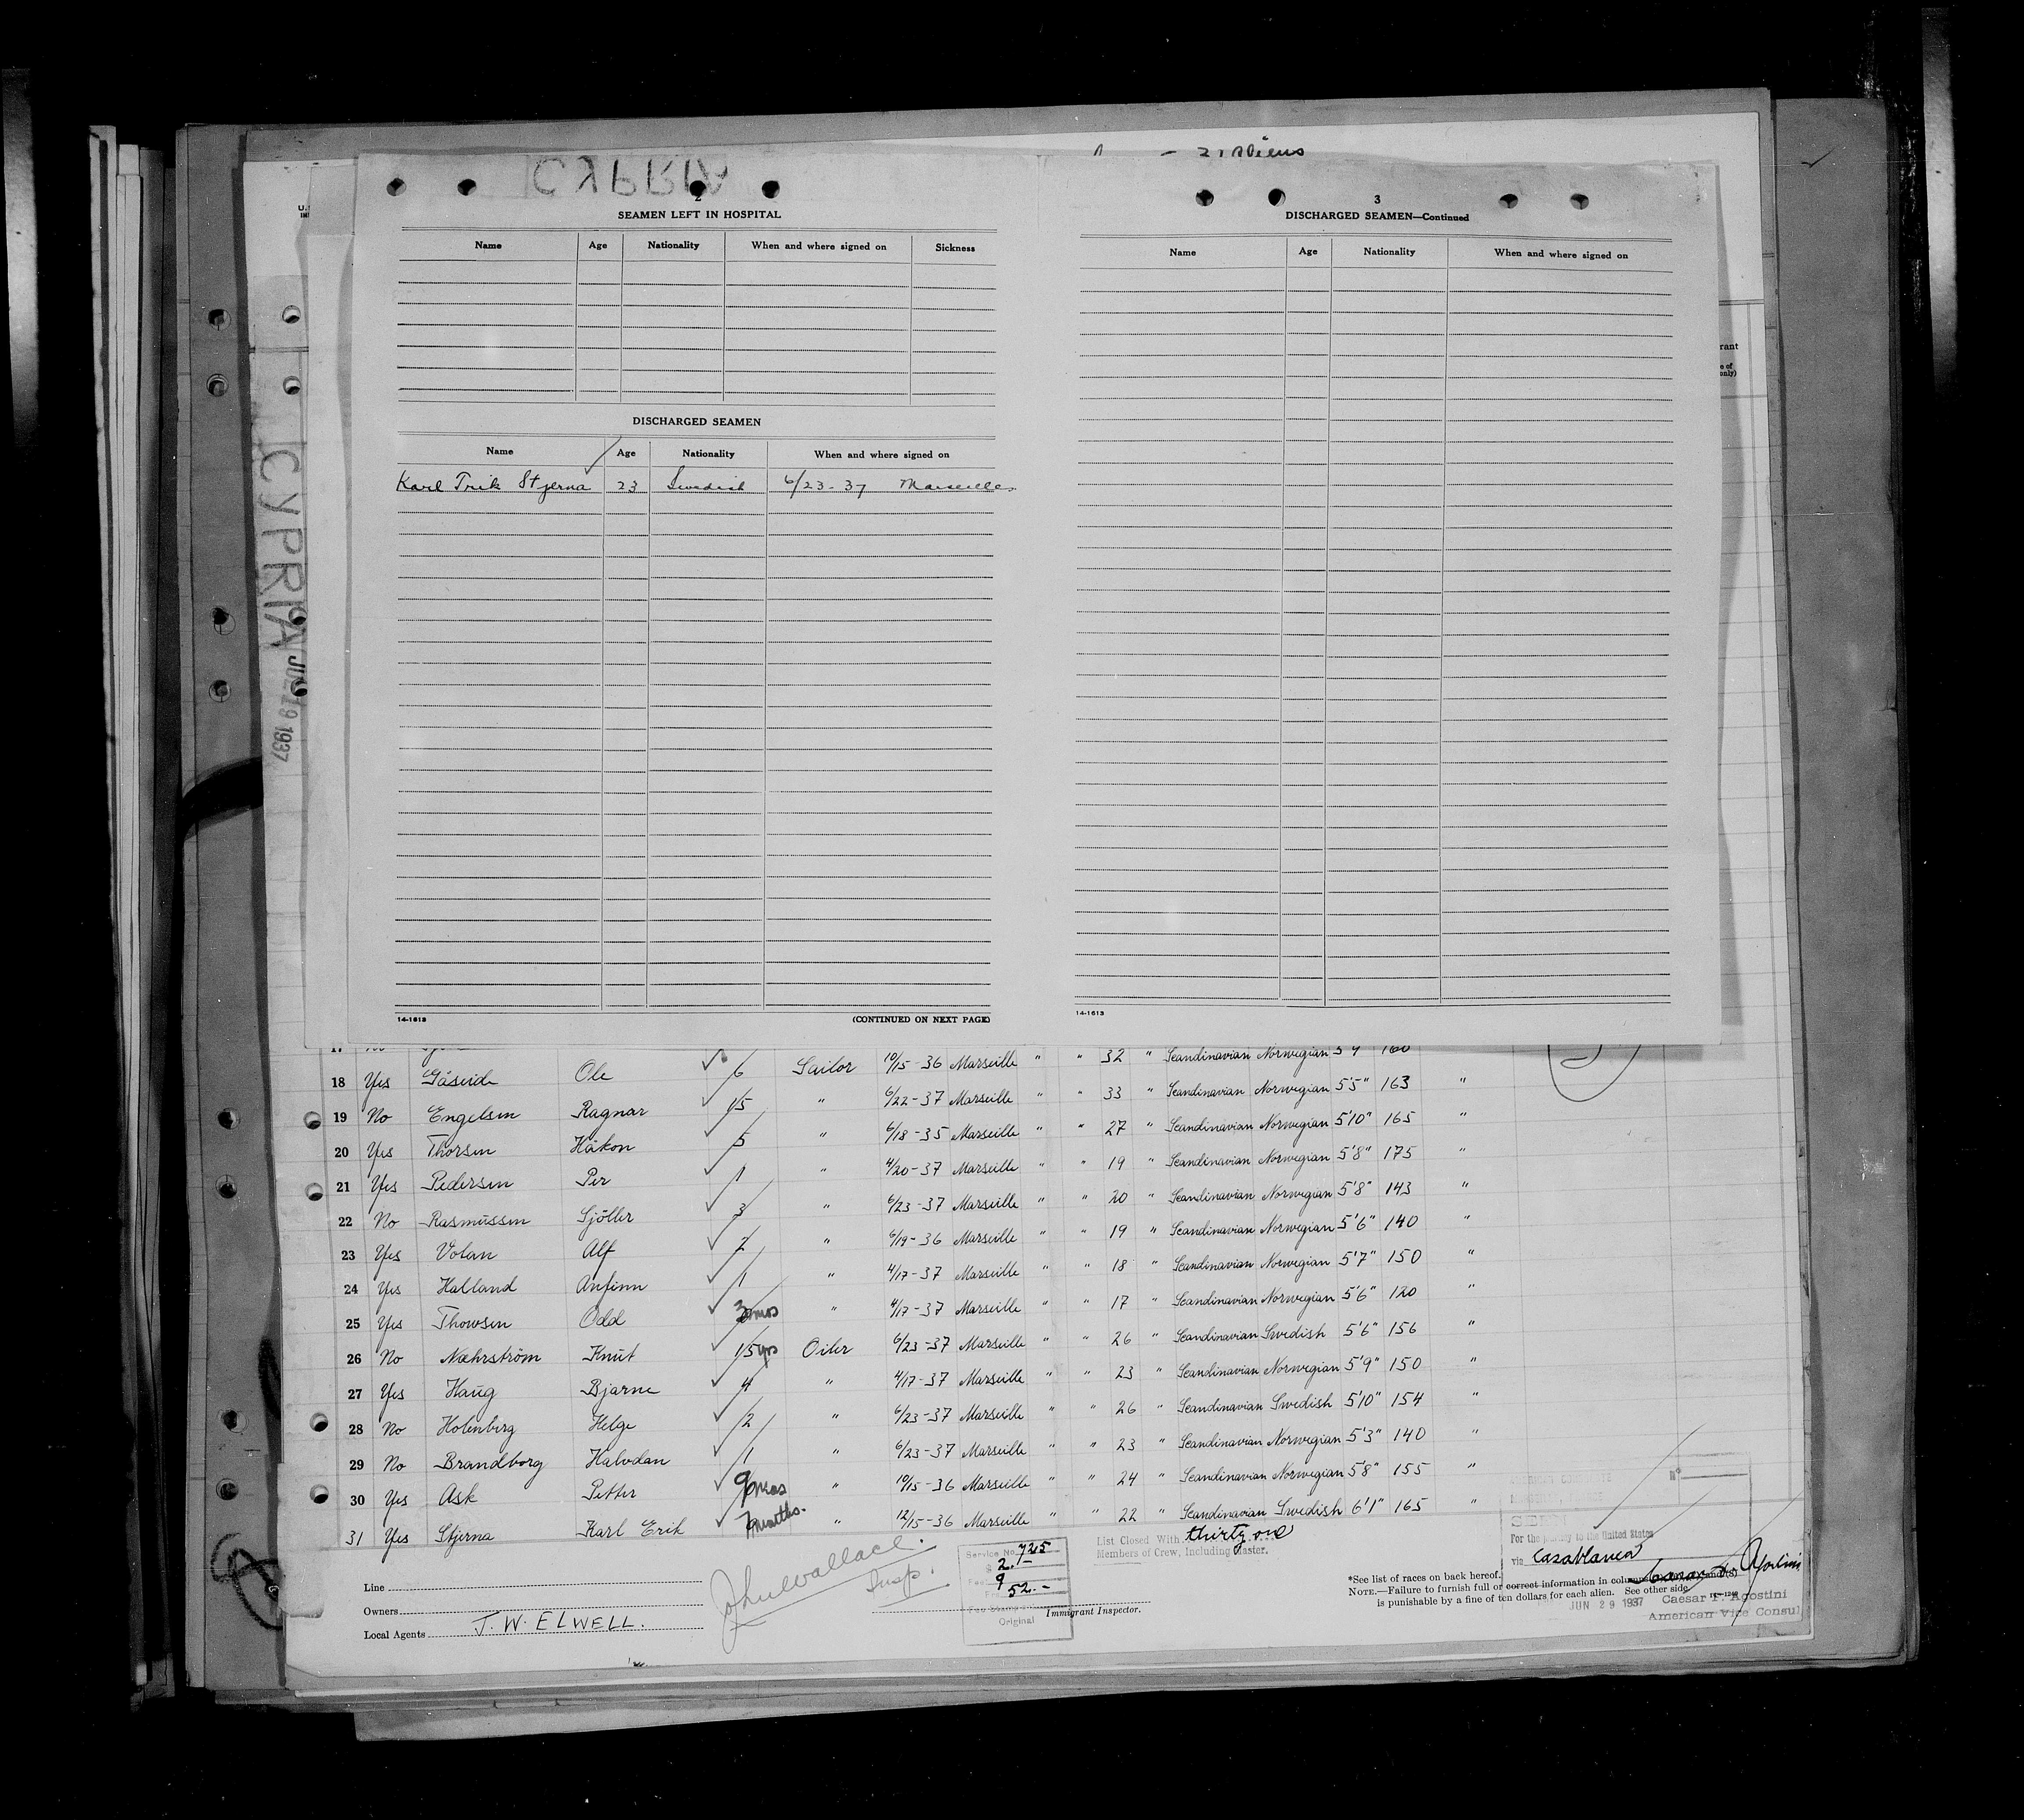 CYPRIA
2
SEAMEN LEFT IN HOSPITAL
Name Age Nationality When and where signed on Sickness
DISCHARGED SEAMEN
Name Age Nationality When and where signed on
Karl Trik Stjerna 23 Swedish 6/23-37 Marseilles
14-1613 (CONTINUED ON NEXT PAGE)
3
DISCHARGED SEAMEN—Continued
Name Age Nationality When and where signed on
14-1613
CYPRIA
JUL 19 1937
17 10/15-36 Marseille " " 32 " Scandinavian Norwegian 160
18 Yes Gåseide Ole 6 Sailor 6/22-37 Marseille " " 33 " Scandinavian Norwegian 5'5" 163 "
19 No Engelsen Ragnar 15 " 6/18-35 Marseille " " 27 " Scandinavian Norwegian 5'10" 165 "
20 Yes Thorsen Håkon 5 " 4/20-37 Marseille " " 19 " Scandinavian Norwegian 5'8" 175 "
21 Yes Pedersen Per 1 " 6/23-37 Marseille " " 20 " Scandinavian Norwegian 5'8" 143 "
22 No Rasmussen Sjöller 3 " 6/19-36 Marseille " " 19 " Scandinavian Norwegian 5'6" 140 "
23 Yes Volan Alf 2 " 4/17-37 Marseille " " 18 " Scandinavian Norwegian 5'7" 150 "
24 Yes Halland Anfinn 1 " 4/17-37 Marseille " " 17 " Scandinavian Norwegian 5'6" 120 "
25 Yes Thowsen Odd 3 mos " 6/23-37 Marseille " " 26 " Scandinavian Swedish 5'6" 156 "
26 No Næhrström Knut 15 yrs Oiler 4/17-37 Marseille " " 23 " Scandinavian Norwegian 5'9" 150 "
27 Yes Haug Bjarne 4 " 6/23-37 Marseille " " 26 " Scandinavian Swedish 5'10" 154 "
28 No Holenberg Helge 2 " 6/23-37 Marseille " " 23 " Scandinavian Norwegian 5'3" 140 "
29 No Brandborg Halvdan 1 " 10/15-36 Marseille " " 24 " Scandinavian Norwegian 5'8" 155 "
30 Yes Ask Petter 9 mos " 12/15-36 Marseille " " 22 " Scandinavian Swedish 6'1" 165 "
31 Yes Stjerna Karl Erik 7 months.
List Closed With thirty one
Members of Crew, Including Master.
John Wallace
Insp.
Service No. 725
2.-
52.-
Original
Line
Owners
Local Agents J. W. ELWELL.
Immigrant Inspector.
SEEN
For the journey to the United States
via Casablanca
*See list of races on back hereof.
NOTE.—Failure to furnish full or correct information in
is punishable by a fine of ten dollars for each alien. See other side
JUN 29 1937
Caesar P. Agostini
American Vice Consul